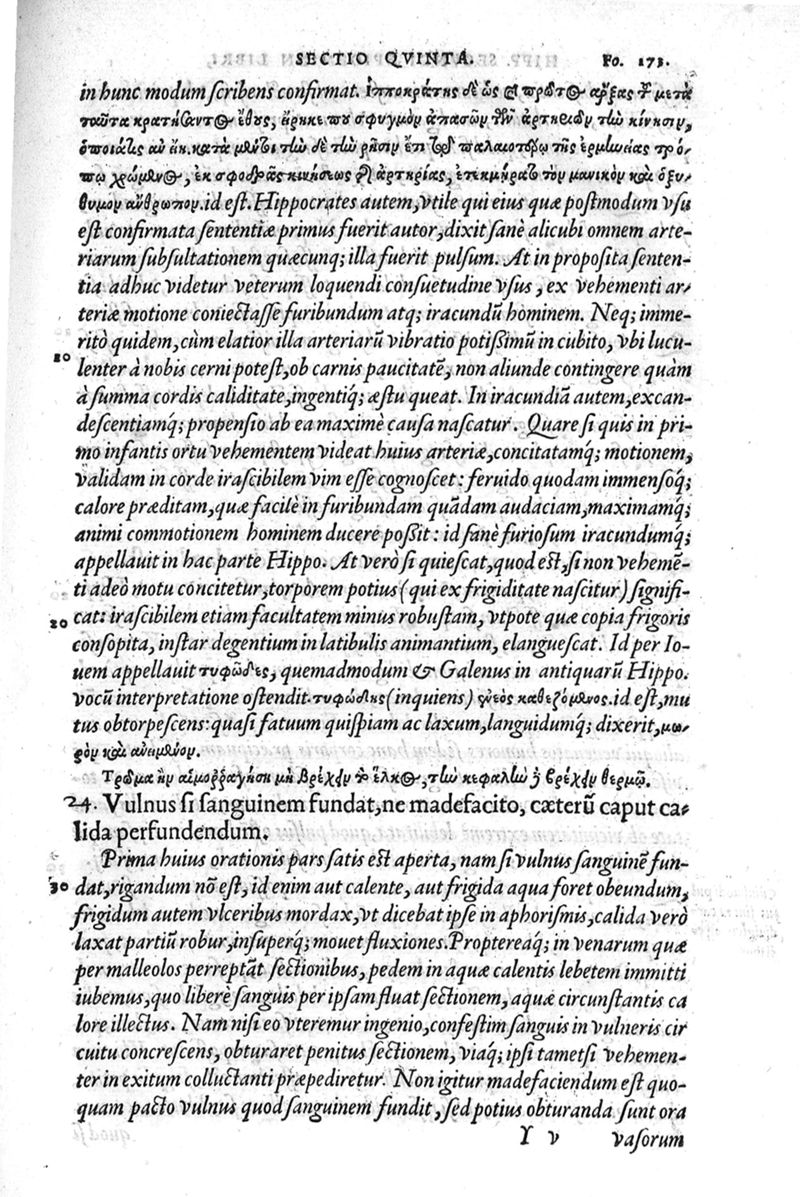 SECTIO QVINTA. Fo. 173.
in hunc modum scribens confirmat. Ἱπποκράτης δὲ ὡς
ταῦτα κρατήσαντος ἔθους, εἴρηκε που σφυγμὸν ἁπασῶν τῶν ἀρτηριῶν τὴν κίνησιν,
ὁποιάτις αὐ τὴν δὲ τὴν ῥῆσιν ἔτι παλαιοτέρῳ τῆς ἑρμηνείας τρό-
πῳ χρώμενος, ἐκ σφοδρᾶς κινήσεως ἀρτηρίας, ἐτεκμήρατο τὸν μανικὸν καὶ ὀξυ-
θυμον ἄνθρωπον. id est. Hippocrates autem, vtile qui eius quæ postmodum vsu
est confirmata sententiæ primus fuerit autor, dixit sanè alicubi omnem arte-
riarum subsultationem quæcunq; illa fuerit pulsum. At in proposita senten-
tia adhuc videtur veterum loquendi consuetudine vsus, ex vehementi ar-
teriæ motione coniectasse furibundum atq; iracundū hominem. Neq; imme-
ritò quidem, cùm elatior illa arteriarū vibratio potissimū in cubito, vbi lucu-
lenter à nobis cerni potest, ob carnis paucitatē, non aliunde contingere quàm
à summa cordis caliditate, ingentiq; æstu queat. In iracundiā autem, excan-
descentiamq́; propensio ab ea maximè causa nascatur. Quare si quis in pri-
mo infantis ortu vehementem videat huius arteriæ, concitatamq́; motionem,
validam in corde irascibilem vim esse cognoscet: feruido quodam immensoq́;
calore præditam, quæ facilè in furibundam quādam audaciam, maximamq́;
animi commotionem hominem ducere possit: id sanè furiosum iracundumq́;
appellauit in hac parte Hippo. At verò si quiescat, quod est, si non vehemē-
ti adeò motu concitetur, torporem potius (qui ex frigiditate nascitur) signifi-
20 cat: irascibilem etiam facultatem minus robustam, vtpote quæ copia frigoris
consopita, instar degentium in latibulis animantium, elanguescat. Id per Io-
uem appellauit τυφῶδες, quemadmodum & Galenus in antiquarū Hippo.
vocū interpretatione ostendit. τυφώδης (inquiens) καθεζόμενος. id est, mu
tus obtorpescens: quasi fatuum quispiam ac laxum, languidumq́; dixerit, μω-
ρὸν καὶ
Τρῶμα ἢν αἱμορραγήσῃ μὴ βρέχειν τὸ ἕλκος, τὴν κεφαλὴν δὲ βρέχειν θερμῷ.
24. Vulnus si sanguinem fundat, ne madefacito, cæterū caput ca-
lida perfundendum.
Prima huius orationis pars satis est aperta, nam si vulnus sanguinē fun-
30 dat, rigandum nō est, id enim aut calente, aut frigida aqua foret obeundum,
frigidum autem vlceribus mordax, vt dicebat ipse in aphorismis, calida verò
laxat partiū robur, insuperq́; mouet fluxiones. Proptereaq́; in venarum quæ
per malleolos perreptāt sectionibus, pedem in aquæ calentis lebetem immitti
iubemus, quo liberè sanguis per ipsam fluat sectionem, aquæ circunstantis ca
lore illectus. Nam nisi eo vteremur ingenio, confestim sanguis in vulneris cir
cuitu concrescens, obturaret penitus sectionem, viaq́; ipsi tametsi vehemen-
ter in exitum colluctanti præpediretur. Non igitur madefaciendum est quo-
quam pacto vulnus quod sanguinem fundit, sed potius obturanda sunt ora
Y v vasorum